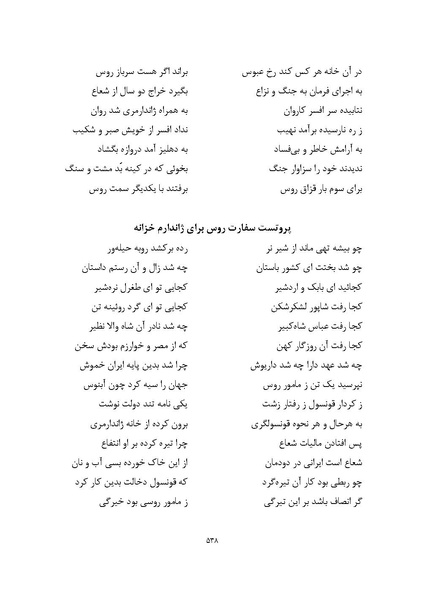 در آن خانه هر کس کند رخ عبوس براند اگر هست سرباز روس
به اجرای فرمان به جنگ و نزاع بگیرد خراج دو سال از شعاع
نتابیده سر افسر کاروان به همراه ژاندارمری شد روان
ز ره نارسیده برآمد نهیب نداد افسر از خویش صبر و شکیب
به آرامش خاطر و بی‌فساد به دهلیز آمد دروازه بگشاد
ندیدند خود را سزاوار جنگ بخوئی که در کینه بُد مشت و سنگ
برای سوم بار قزاق روس برفتند با یکدیگر سمت روس
پروتست سفارت روس برای ژاندارم خزانه
چو بیشه تهی ماند از شیر نر رده برکشد روبه حیله‌ور
چو شد بختت ای کشور باستان چه شد زال و آن رستم داستان
کجائید ای بابک و اردشیر کجایی تو ای طغرل نره‌شیر
کجا رفت شاپور لشکرشکن کجایی تو ای گرد روئینه تن
کجا رفت عباس شاه‌کبیر چه شد نادر آن شاه والا نظیر
کجا رفت آن روزگار کهن که از مصر و خوارزم بودش سخن
چه شد عهد دارا چه شد داریوش چرا شد بدین پایه ایران خموش
نپرسید یک تن ز مامور روس جهان را سیه کرد چون آبنوس
ز کردار قونسول ز رفتار زشت یکی نامه تند دولت نوشت
به هرحال و هر نحوه قونسولگری برون کرده از خانه ژاندارمری
پس افتادن مالیات شعاع چرا تیره کرده بر او انتفاع
شعاع است ایرانی در دودمان از این خاک خورده بسی آب و نان
چو ربطی بود کار آن تیره‌گرد که قونسول دخالت بدین کار کرد
گر انصاف باشد بر این تیرگی ز مامور روسی بود خیرگی
۵۳۸